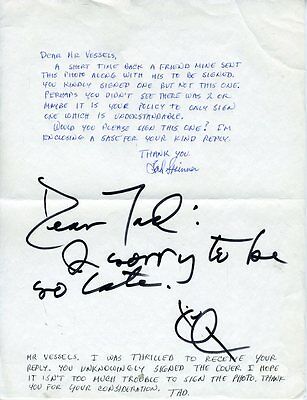 DEAR MR VESSELS,
A SHORT TIME BACK A FRIEND MINE SENT
THIS PHOTO ALONG WITH HIS TO BE SIGNED.
YOU KINDLY SIGNED ONE BUT NOT THIS ONE.
PERHAPS YOU DIDN'T SEE THERE WAS 2 OR
MAYBE IT IS YOUR POLICY TO ONLY SIGN
ONE WHICH IS UNDERSTANDABLE.
WOULD YOU PLEASE SIGN THIS ONE? I'M
ENCLOSING A SASE FOR YOUR KIND REPLY.
THANK YOU
Tad Skinner
Dear Tad:
I sorry to be
so late.
MR VESSELS, I WAS THRILLED TO RECEIVE YOUR
REPLY. YOU UNKNOWINGLY SIGNED THE COVER I HOPE
IT ISN'T TOO MUCH TROUBLE TO SIGN THE PHOTO, THANK
YOU FOR YOUR CONSIDERATION. TAD.